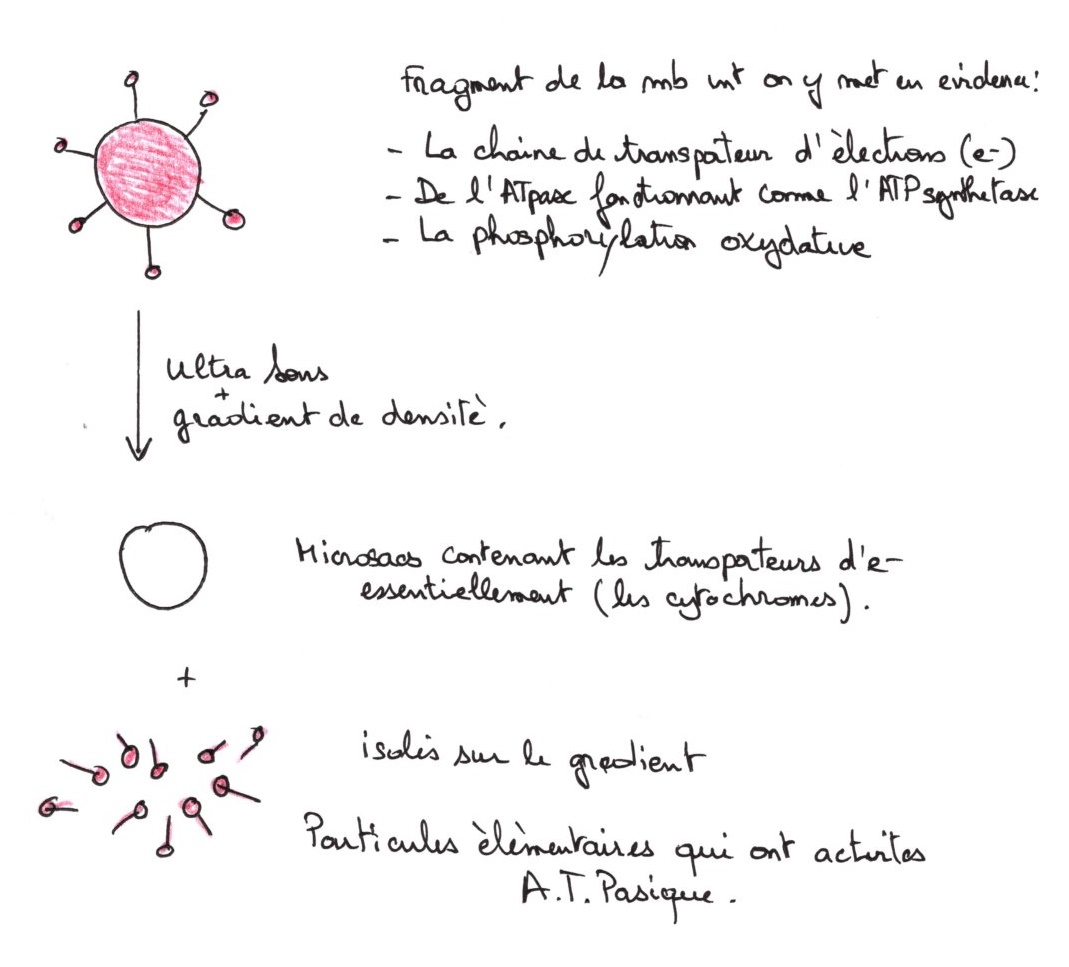 Fragment de la mb int on y met en evidence:
- La chaine de transpateur d'èlections (e-)
- De l'ATpase fonctionnant comme l'ATPsynthetase
- La phosphorylation oxydative
Ultra sons
+
gradient de densitè.
Microsacs contenant les transpateurs d'e-
essentiellement (les cytochromes).
+
isolés sur le gradient
Particules èlèmentaires qui ont activites
A.T.Pasique.